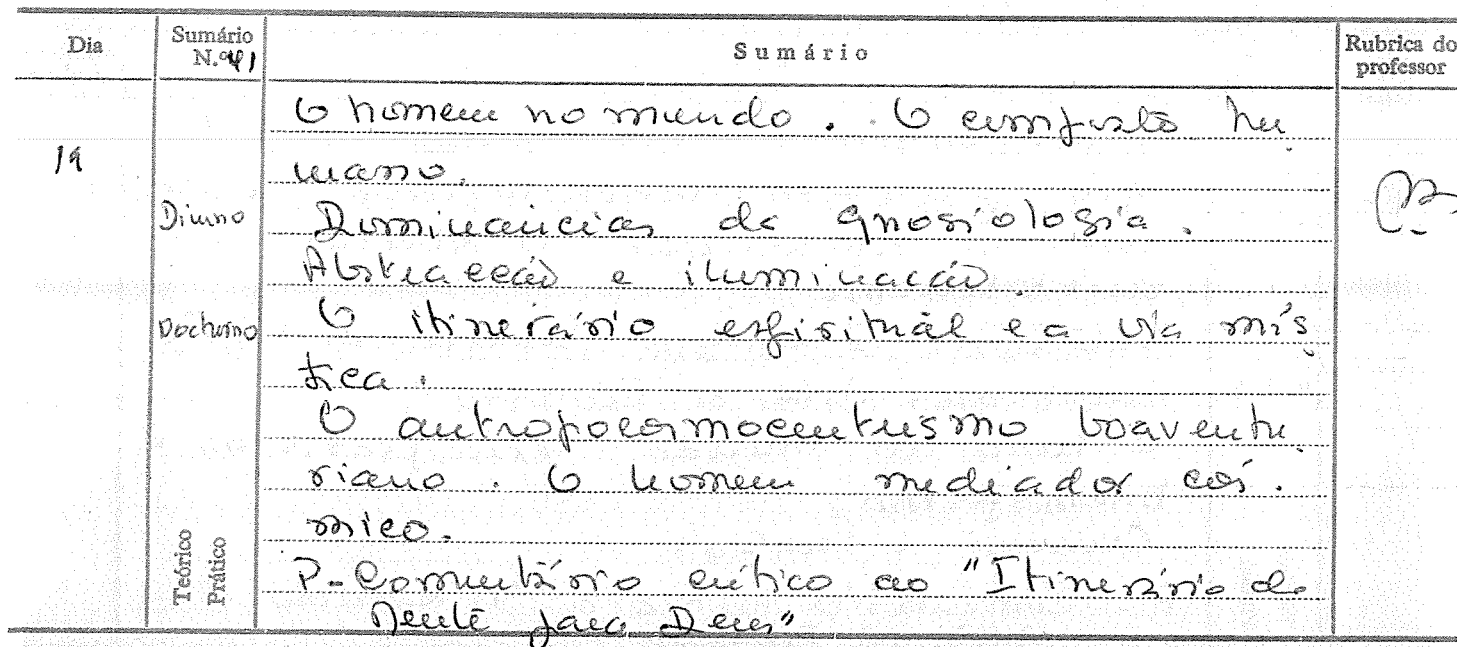 Dia
Sumário
N.º 41
Sumário
Rubrica do
professor
19
Diurno
Nocturno
Teórico
Prático
O homem no mundo. O composto hu
mano.
Dominâncias da gnosiologia.
Abstracção e iluminação.
O itinerário espiritual e a via mís
tica.
O antropocosmocentrismo boaventu
riano. O homem mediador cós.
mico.
P-Comentário crítico ao "Itinerário da
Mente para Deus"